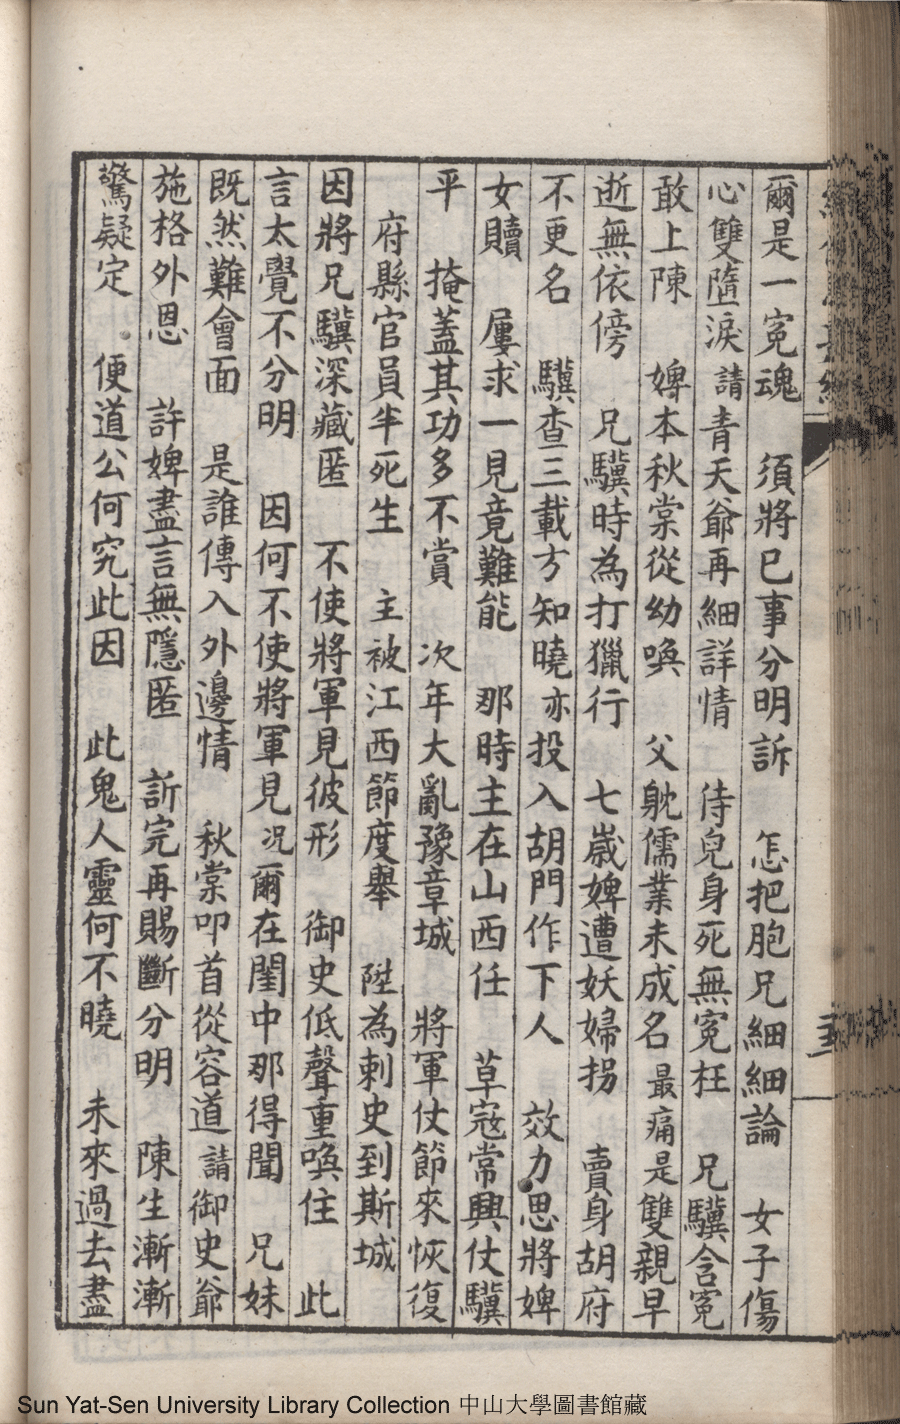 爾是一冤魂　須將已事分明訴　怎把胞兄細細論　女子傷
心雙墮淚　請青天爺再細詳情　侍兒身死無冤枉　兄驥含冤
敢上陳　婢本秋棠從幼喚　父躭儒業未成名　最痛是雙親早
逝無依傍　兄驥時為打獵行　七歲婢遭妖婦拐　賣身胡府
不更名　驥查三載方知曉　亦投入胡門作下人　效力思將婢
女贖　屢求一見竟難能　那時主在山西任　草寇常興仗驥
平　掩蓋其功多不賞　次年大亂豫章城　將軍仗節來恢復
府縣官員半死生　主被江西節度舉　陞為刺史到斯城
因將兄驥深藏匿　不使將軍見彼形　御史低聲重喚住　此
言太覺不分明　因何不使將軍見　况爾在閨中那得聞　兄妹
既然難會面　是誰傳入外邊情　秋棠叩首從容道　請御史爺
施格外恩　許婢盡言無隱匿　訴完再賜斷分明　陳生漸漸
驚疑定　便道公何究此因　此鬼人靈何不曉　未來過去盡
Sun Yat-Sen University Library Collection 中山大學圖書館藏